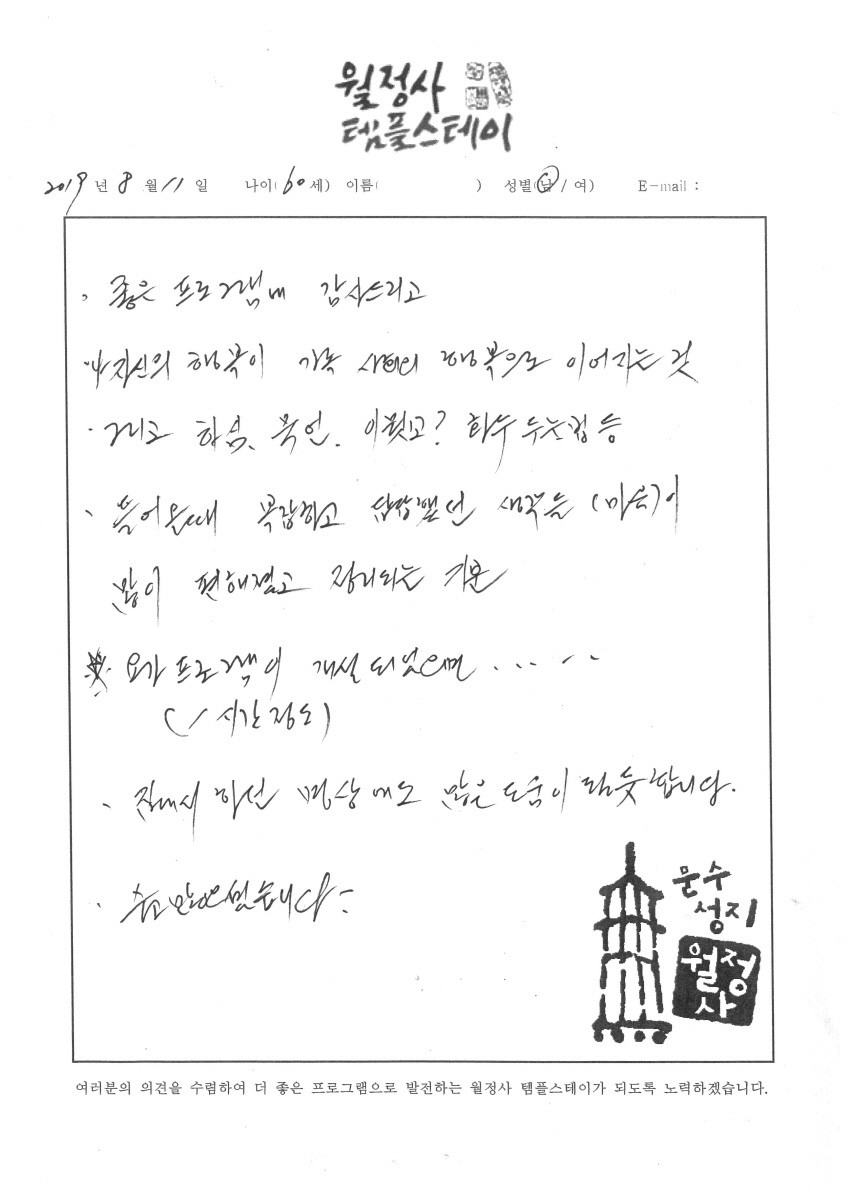 월정사
템플스테이
2019 년 8 월 11 일 나이(60세) 이름( ) 성별(남/여) E-mail :
, 좋은 프로그램에 감사드리고
자신의 행복이 가족 사회의 행복으로 이어지는 것
· 그리고 하심, 묵언, 이뭣고? 화두
、 들어올때 복잡하고 답답했던 생각들 (마음)이
많이 편해졌고 정리되는 기분
요가 프로그램이 개설되었으면 ... ..
(1시간 정도)
、 집에서 하던 명상에도 많은 도움이 될듯 합니다.
、 수고 많으셨습니다
문수
성지
월정
사
여러분의 의견을 수렴하여 더 좋은 프로그램으로 발전하는 월정사 템플스테이가 되도록 노력하겠습니다.